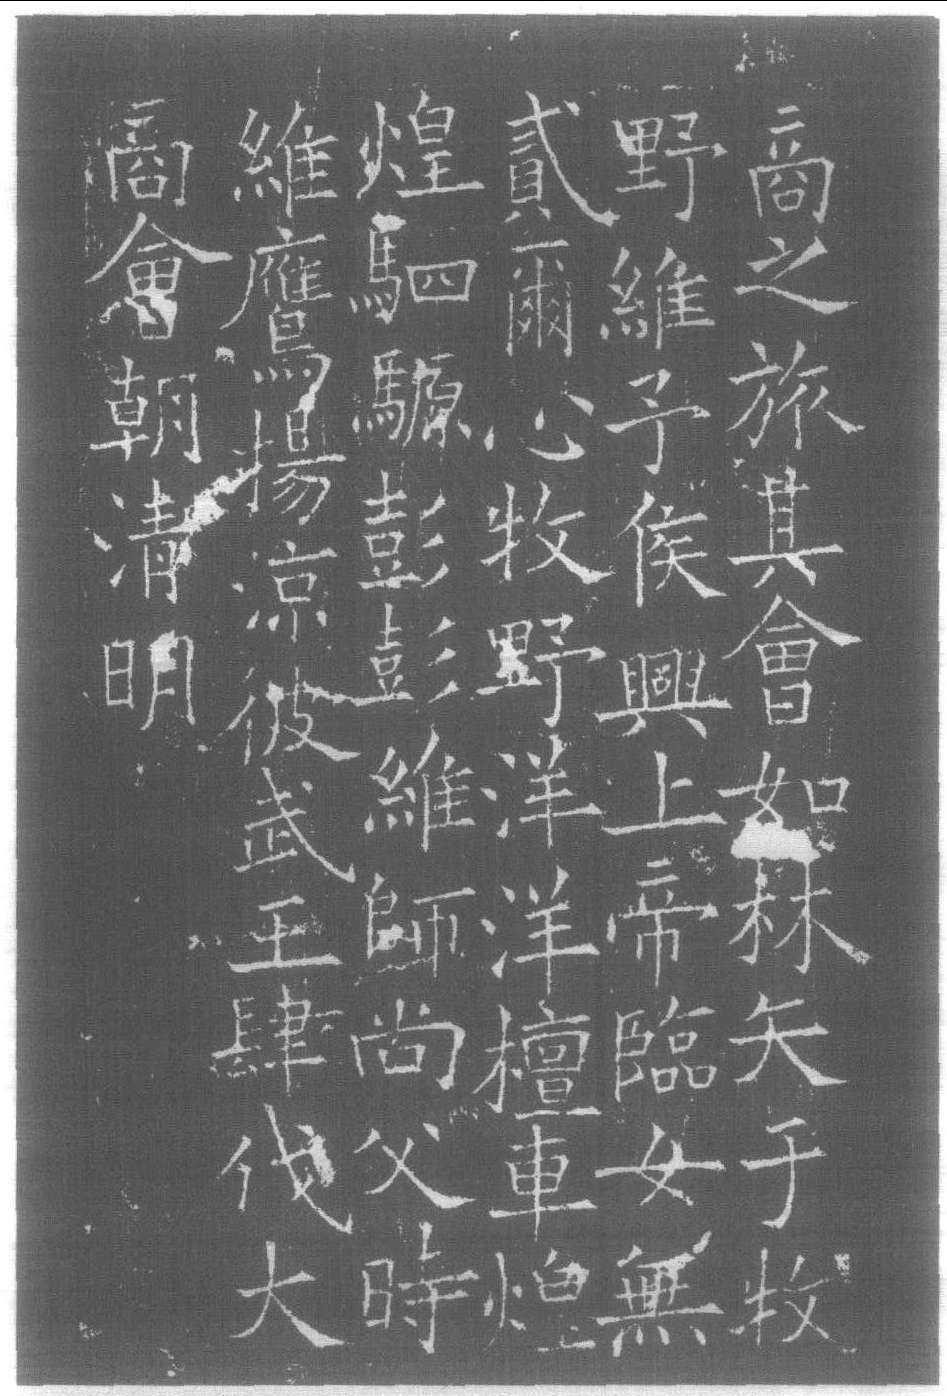 商之旅其會如林矢于牧
野維予侯興上帝臨女無
貳爾心牧野洋洋檀車煌
煌駟騵彭彭維師尚父時
維鷹揚涼彼武王肆伐大
商會朝清明